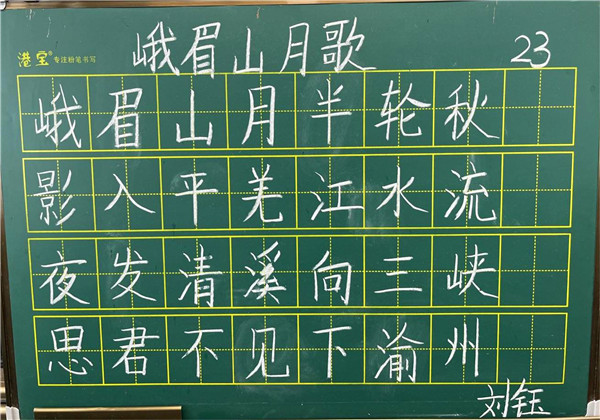 港宝® 专注粉笔书写
峨眉山月歌 23
峨眉山月半轮秋
影入平羌江水流
夜发清溪向三峡
思君不见下渝州
刘钰